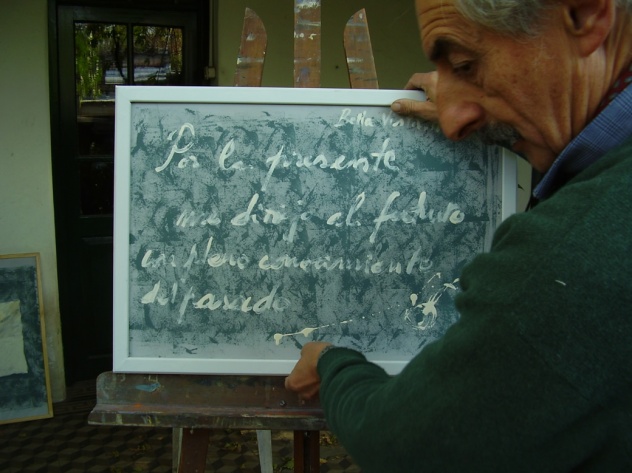 Bella
Por la presente
me dirijo al futuro
con pleno conocimiento
del pasado